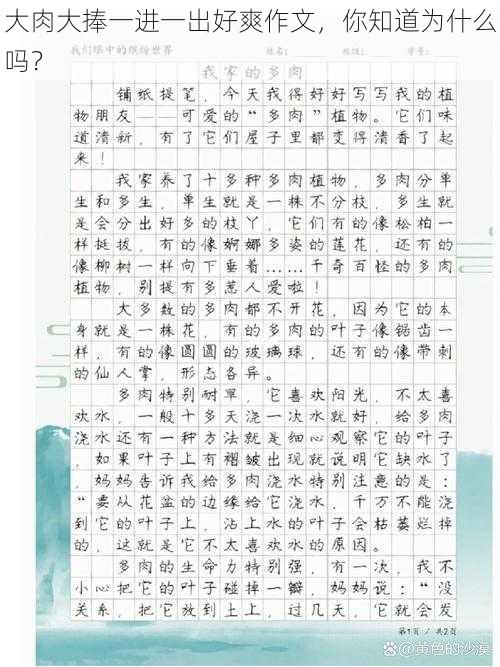 大肉大捧一进一出好爽作文，你知道为什么
吗？
我们眼中的缤纷世界 姓名： 班级： 学号：
我家的多肉
铺纸提笔，今天我得好好写写我的植
物朋友——可爱的“多肉”植物。它们味
道清新，有了它们屋子里都变得清香了起
来！
我家养了十多种多肉植物，多肉分单
生和多生，单生就是一株不分枝，多生就
是会分出好多的枝丫，它们有的像松柏一
样挺拔，有的像婀娜多姿的莲花，还有的
像柳树一样向下垂着……千奇百怪的多肉
植物，别提有多惹人爱啦！
大多数的多肉都不开花，因为它的本
身就是一株花，有的多肉的叶子像锯齿一
样，有的像圆圆的玻璃球，还有的像带刺
的仙人掌，形态各异。
多肉特别耐旱，它喜欢阳光，不太喜
欢水，一般十多天浇一次水就好，给多肉
浇水还有一种方法就是细心观察它的叶子
，如果叶子上有褶皱出现就说明它缺水了
，妈妈告诉我给多肉浇水特别注意的是：
“要从花盆的边缘给它浇水，千万不能浇
到它的叶子上，沾上水的叶子会枯萎烂掉
的，这就是它不太喜欢水的原因。
多肉的生命力特别强，有一次，我不
小心把它的叶子碰掉一瓣，妈妈说：“没
关系，把它放到土上，过几天，它就会发
第1页 / 共2页
@黄色的沙漠